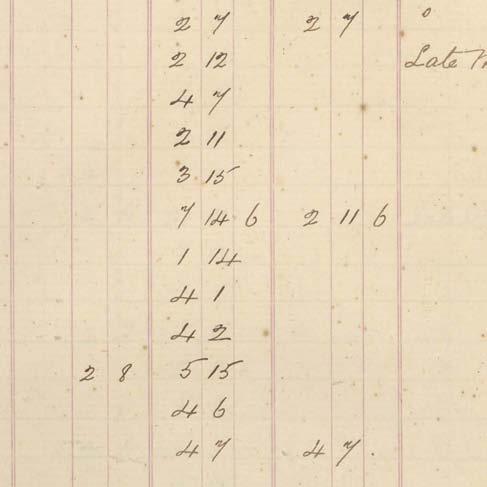 2 7 2 7 0
2 12 Late
4 7
2 11
3 15
7 14 6 2 11 6
1 14
4 1
4 2
2 8 5 15
4 6
4 7 4 7.